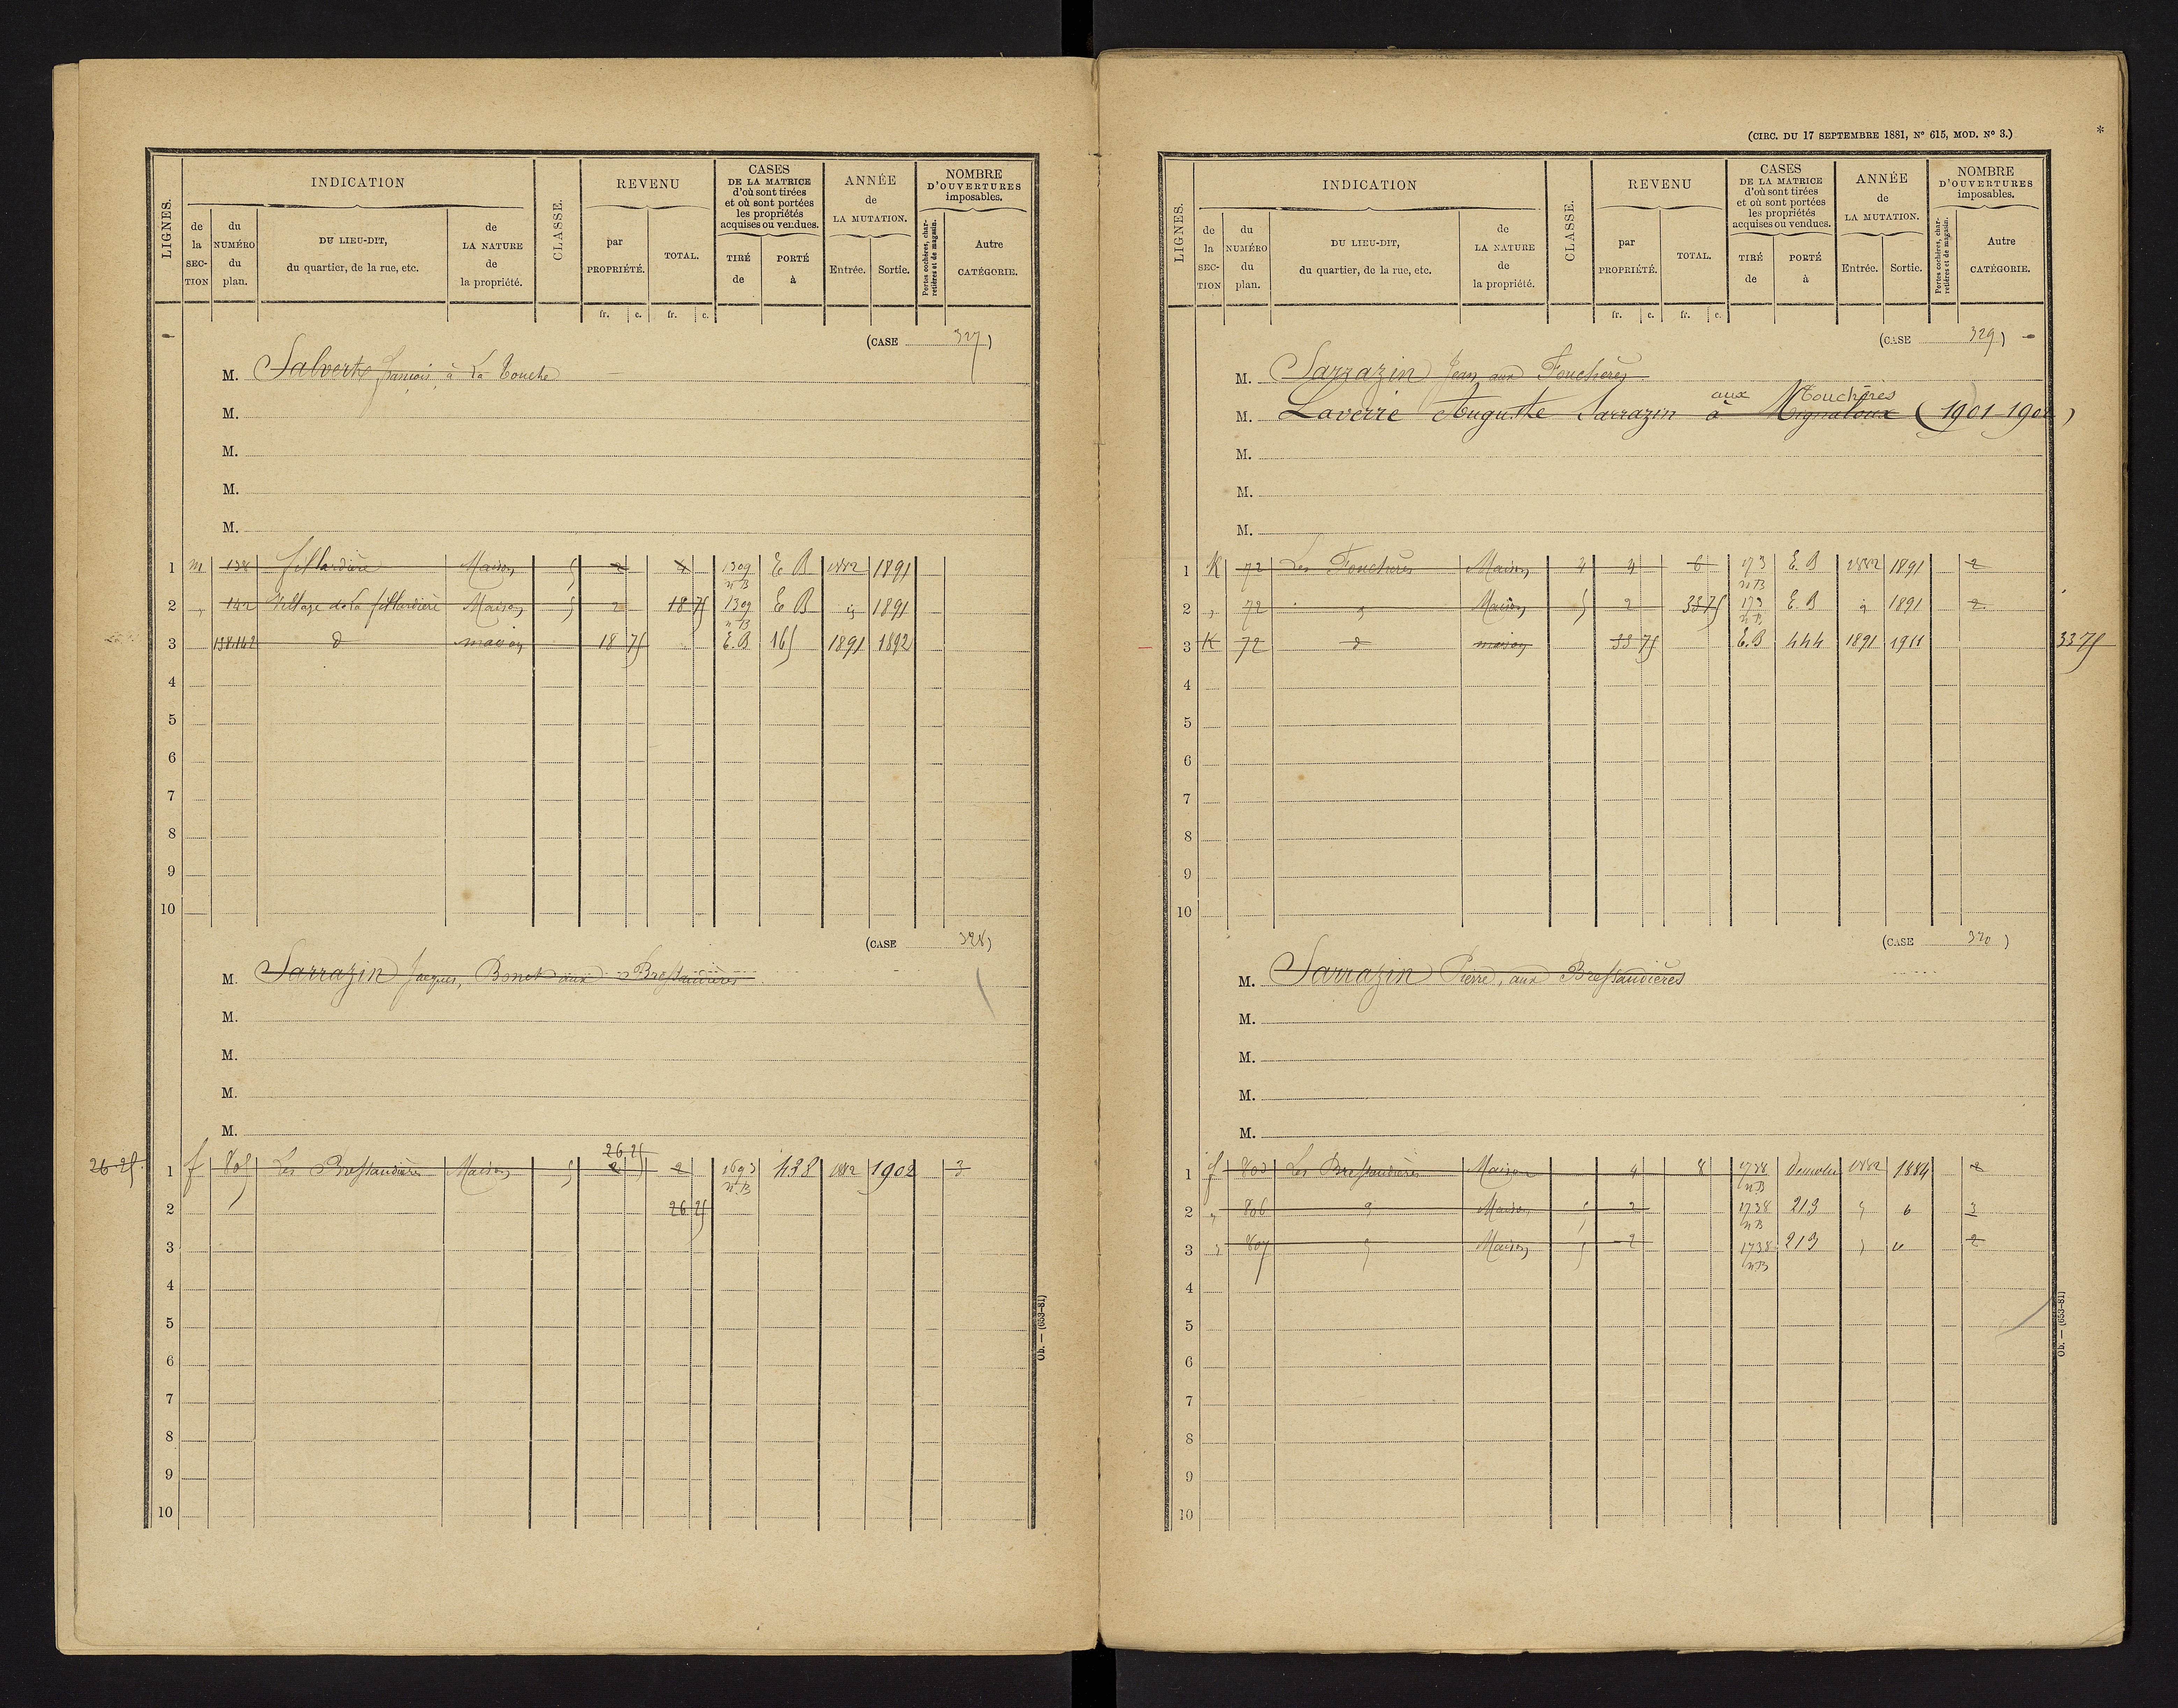 LIGNES.
INDICATION
CLASSE.
REVENU
CASES
DE LA MATRICE
d'où sont tirées
et où sont portées
les propriétés
acquises ou vendues.
ANNÉE
de
LA MUTATION.
NOMBRE
D'OUVERTURES
imposables.
de la SECTION
du NUMÉRO du plan.
DU LIEU-DIT,
du quartier, de la rue, etc.
de LA NATURE de la propriété.
par PROPRIÉTÉ.
TOTAL.
TIRÉ de
PORTÉ à
Entrée.
Sortie.
Portes cochères, charretières et de magasin.
Autre CATÉGORIE.
fr. c. fr. c.
(CASE 327)
M. Salverts françois, à La Touche
M.
M.
M.
M.
1 m 138 fillardière Maison 5 2 4 1309 nB E B 1882 1891
2 " 142 Village de la fillardière Maison 5 2 18 75 1309 nB E B " 1891
3 138.142 d maison 18 75 E.B 165 1891 1892
4
5
6
7
8
9
10
(CASE 328)
M. Sarrazin Jacques, Bonet aux Bressaudières
M.
M.
M.
M.
26 25
26-25 1 f 805 Les Bressaudières Maison 5 2 2 1693 nB 438 1882 1902 3
2 26 25
3
4
5
6
7
8
9
10
Ob. — (653-81)
(CIRC. DU 17 SEPTEMBRE 1881, N° 615, MOD. N° 3.)
*
LIGNES.
INDICATION
CLASSE.
REVENU
CASES
DE LA MATRICE
d'où sont tirées
et où sont portées
les propriétés
acquises ou vendues.
ANNÉE
de
LA MUTATION.
NOMBRE
D'OUVERTURES
imposables.
de la SECTION
du NUMÉRO du plan.
DU LIEU-DIT,
du quartier, de la rue, etc.
de LA NATURE de la propriété.
par PROPRIÉTÉ.
TOTAL.
TIRÉ de
PORTÉ à
Entrée.
Sortie.
Portes cochères, charretières et de magasin.
Autre CATÉGORIE.
fr. c. fr. c.
(CASE 329)
M. Sarrazin Jean aux Fouchères
aux Mouchères
M. Laverré Auguste Sarrazin à Mignaloux (1901-1902)
M.
M.
M.
1 K 72 Les Fouchères Maison 4 4 6 173 nB E.B 1882 1891 2
2 " 72 " Maison 5 2 33 75 173 nB E.B " 1891 2
3 K 72 d maison 33 75 E.B 444 1891 1911 33 75
4
5
6
7
8
9
10
(CASE 330)
M. Sarrazin Pierre, aux Bressaudières
M.
M.
M.
M.
1 f 803 Les Bressaudières Maison 4 8 1738 nB Démolie 1882 1884 2
2 " 806 " Maison 5 2 1738 nB 213 " " 3
3 " 807 " Maison 5 2 1738 nB 213 " " 2
4
5
6
7
8
9
10
Ob. — (653-81)